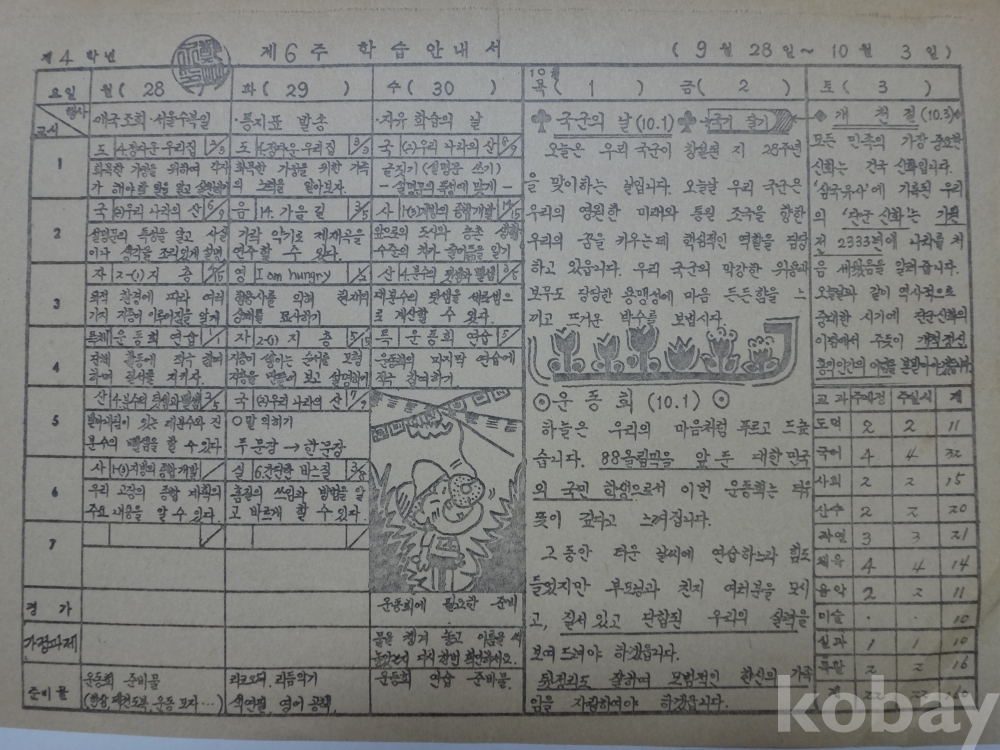 제4학년 제6주 학습안내서 (9월 28일~10월 3일)
요일 월(28) 화(29) 수(30) 목(1) 금(2) 토(3)
10월
행사
교시
애국조회·서울수복일
·통지표 발송
·자유 학습의 날
1
도 4.정다운 우리집
화목한 가정을 위하여 각자
가 해야 할 일을 알고
도 4.정다운 우리집
화목한 가정을 위한 가족
의 노력을 알아보자.
국 (2)우리 나라의 산 8/9
글짓기 (설명문 쓰기)
- 설명문의 특징에 맞게 -
2
국 (2)우리 나라의 산 6/9
설명문의 특징을 알고 사실
이나 생각을 조리있게 설명
음 14. 가을 길 3/5
가락 악기로 제재곡을
연주할 수 있다.
사 1-(3)지방의 종합개발 14/15
앞으로의 도시와 농촌 생활
3
자 2-(1)지층
퇴적 환경에 따라 여러
가지 지층이 이루어짐을 알게
영 I am hungry
형용사를 익혀 현재의
상태를 표사하기
산 4.분수의 덧셈과 뺄셈 3/5
대분수의 덧셈을 세로셈으
로 계산할 수 있다.
4
특체 운동회 연습 1/1
전체 활동에 적극 참여
하여 질서를 지키자.
자 2-(1)지층
지층이 쌓이는 순서를 모형
지층을 만들어 보고 설명하기
특 운동회 연습 5/5
운동회의 마지막 연습에
적극 참여하기
5
산 4.분수의 덧셈과 뺄셈 2/5
받아내림이 있는 대분수와 진
분수의 뺄셈을 할 수 있다
국 (2)우리 나라의 산 7/9
○말 익히기
두 문장 → 한 문장
6
사 1-(3)지방의 종합개발
우리 고장의 종합 계획의
주요 내용을 알 수 있다.
실 6.간단한 바느질 3/8
홈질의 쓰임과 방법을 알
고 바르게 할 수 있다.
7
평가
운동회에 필요한 준비
가정과제
물을 챙겨 놓고 이름을 써
놓았는지 다시 한번 확인하세요.
준비물
운동회 준비물
리코오더, 리듬악기
색연필, 영어 공책,
운동회 연습 준비물
국군의 날 (10.1) 국기 달기
오늘은 우리 국군이 창설된 지 28주년
을 맞이하는 날입니다. 오늘날 우리 국군은
우리의 영원한 미래와 통일 조국을 향한
우리의 꿈을 키우는데 핵심적인 역할을 담당
하고 있읍니다. 우리 국군의 막강한 위용과
보무도 당당한 용맹성에 마음 든든함을 느
끼고 뜨거운 박수를 보냅시다.
운동회 (10.1)
하늘은 우리의 마음처럼 푸르고 드높
습니다. 88올림픽을 앞둔 대한민국
의 국민 학생으로서 이번 운동회는 더욱
뜻이 깊다고 느껴집니다.
그동안 더운 날씨에 연습하느라 힘도
들었지만 부모님과 친지 여러분을 모시
고, 질서 있고 단합된 우리의 실력을
보여 드려야 하겠읍니다.
뒷정리도 잘하며 모범적인 한신의 가족
임을 자랑하여야 하겠읍니다.
개천절 (10.3)
모든 민족의 가장 중요한
신화는 건국 신화입니다.
'삼국유사'에 기록된 우리
의 '단군 신화'는 기원
전 2333년에 나라를 처
음 세웠음을 알려줍니다.
오늘날과 같이 역사적으로
중대한 시기에 단군신화의
교과 주예정 주실시 계
도덕 2 2 11
국어 4 4 32
사회 2 2 15
산수 2 2 20
자연 3 3 21
체육 4 4 14
음악 2 2 11
미술 · · 10
실과 1 1 10
특활 2 2 16
계 22 22
kobay